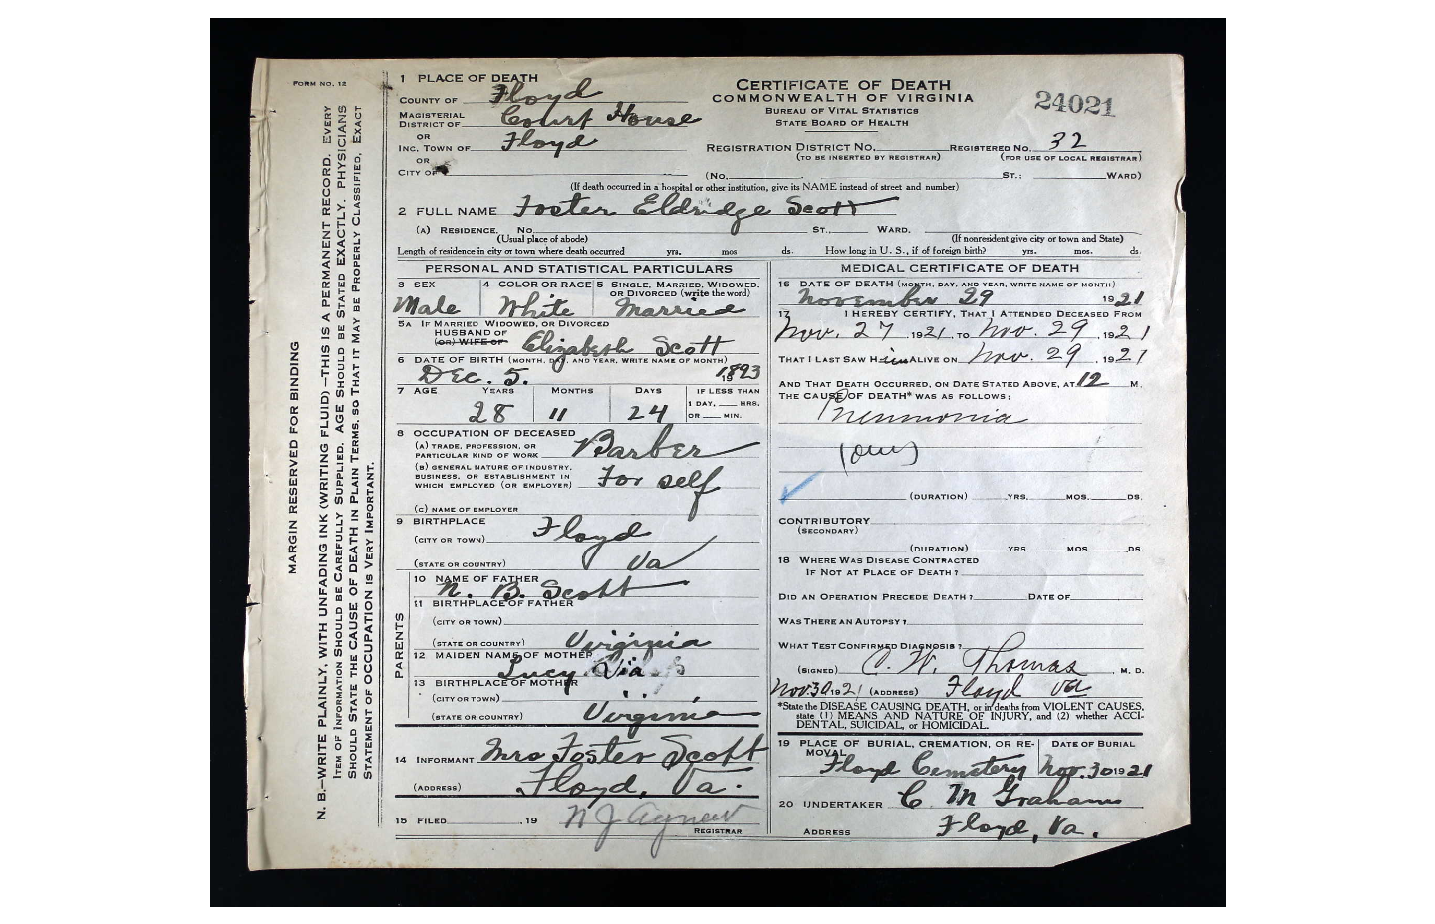 FORM NO. 12
MARGIN RESERVED FOR BINDING
N. B.—WRITE PLAINLY, WITH UNFADING INK (WRITING FLUID)—THIS IS A PERMANENT RECORD. EVERY
ITEM OF INFORMATION SHOULD BE CAREFULLY SUPPLIED. AGE SHOULD BE STATED EXACTLY. PHYSICIANS
SHOULD STATE THE CAUSE OF DEATH IN PLAIN TERMS, SO THAT IT MAY BE PROPERLY CLASSIFIED. EXACT
STATEMENT OF OCCUPATION IS VERY IMPORTANT.
CERTIFICATE OF DEATH
COMMONWEALTH OF VIRGINIA
BUREAU OF VITAL STATISTICS
STATE BOARD OF HEALTH
24021
1 PLACE OF DEATH
COUNTY OF Floyd
MAGISTERIAL DISTRICT OF Court House
OR
INC. TOWN OF Floyd
OR
CITY OF
REGISTRATION DISTRICT NO. REGISTERED NO. 32
(TO BE INSERTED BY REGISTRAR) (FOR USE OF LOCAL REGISTRAR)
(NO. ST.: WARD)
(If death occurred in a hospital or other institution, give its NAME instead of street and number)
2 FULL NAME Foster Eldridge Scott
(A) RESIDENCE. NO. ST. WARD.
(Usual place of abode) (If nonresident give city or town and State)
Length of residence in city or town where death occurred yrs. mos ds. How long in U. S., if of foreign birth? yrs. mos. ds.
PERSONAL AND STATISTICAL PARTICULARS
3 SEX 4 COLOR OR RACE 5 SINGLE, MARRIED, WIDOWED, OR DIVORCED (write the word)
Male White Married
5A IF MARRIED WIDOWED, OR DIVORCED
HUSBAND OF
(OR) WIFE OF Elizabeth Scott
6 DATE OF BIRTH (MONTH, DAY, AND YEAR, WRITE NAME OF MONTH)
Dec. 5. 1893
7 AGE YEARS MONTHS DAYS IF LESS THAN
1 DAY, HRS.
28 11 24 OR MIN.
8 OCCUPATION OF DECEASED
(A) TRADE, PROFESSION, OR
PARTICULAR KIND OF WORK Barber
(B) GENERAL NATURE OF INDUSTRY,
BUSINESS, OR ESTABLISHMENT IN
WHICH EMPLOYED (OR EMPLOYER) For self
(C) NAME OF EMPLOYER
9 BIRTHPLACE
(CITY OR TOWN) Floyd
(STATE OR COUNTRY) Va
PARENTS
10 NAME OF FATHER
N. B. Scott
11 BIRTHPLACE OF FATHER
(CITY OR TOWN)
(STATE OR COUNTRY) Virginia
12 MAIDEN NAME OF MOTHER
Lucy Via
13 BIRTHPLACE OF MOTHER
(CITY OR TOWN)
(STATE OR COUNTRY) Virginia
14 INFORMANT Mrs Foster Scott
(ADDRESS) Floyd, Va.
15 FILED , 19 N J Agnew
REGISTRAR
MEDICAL CERTIFICATE OF DEATH
16 DATE OF DEATH (MONTH, DAY, AND YEAR, WRITE NAME OF MONTH)
November 29 1921
17 I HEREBY CERTIFY, THAT I ATTENDED DECEASED FROM
Nov. 27, 1921, TO Nov. 29, 1921
THAT I LAST SAW Him ALIVE ON Nov. 29, 1921
AND THAT DEATH OCCURRED, ON DATE STATED ABOVE, AT 12 M.
THE CAUSE OF DEATH* WAS AS FOLLOWS:
Pneumonia
(DURATION) YRS. MOS. DS.
CONTRIBUTORY
(SECONDARY)
(DURATION) YRS MOS DS
18 WHERE WAS DISEASE CONTRACTED
IF NOT AT PLACE OF DEATH?
DID AN OPERATION PRECEDE DEATH? DATE OF
WAS THERE AN AUTOPSY?
WHAT TEST CONFIRMED DIAGNOSIS?
(SIGNED) C. W. Thomas M. D.
Nov 30 1921 (ADDRESS) Floyd Va
*State the DISEASE CAUSING DEATH, or in deaths from VIOLENT CAUSES,
state (1) MEANS AND NATURE OF INJURY, and (2) whether ACCI-
DENTAL, SUICIDAL, or HOMICIDAL.
19 PLACE OF BURIAL, CREMATION, OR RE-
MOVAL DATE OF BURIAL
Floyd Cemetery Nov. 30 1921
20 UNDERTAKER C M Graham
ADDRESS Floyd, Va.